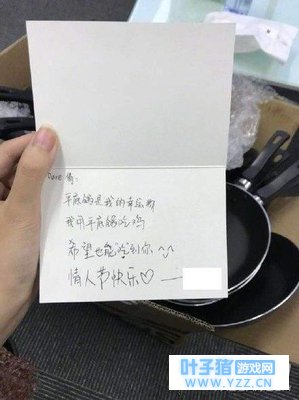 Dave 倩:
平底锅是我的幸运物
我用平底锅吃鸡
希望也能吃到你~
情人节快乐♡ ——
叶子猪游戏网
www.YZZ.CN